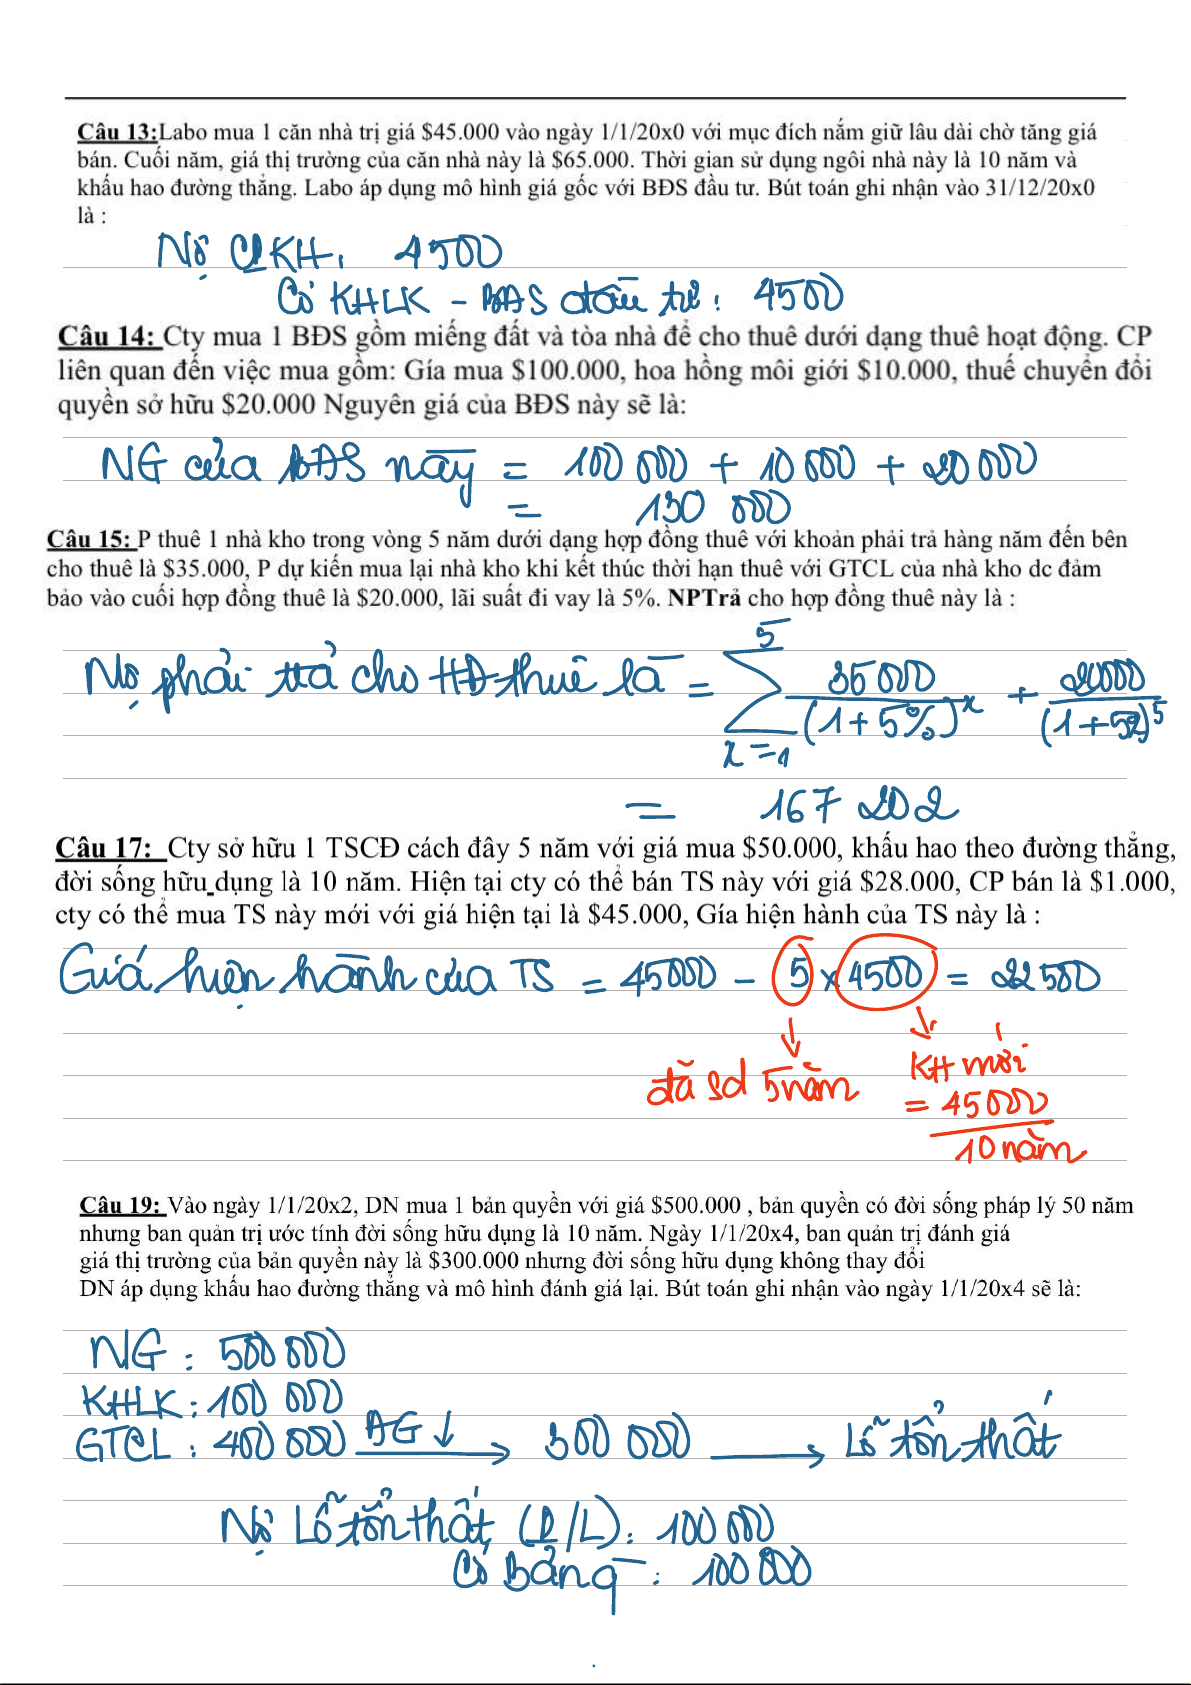 Câu 13:Labo mua 1 căn nhà trị giá $45.000 vào ngày 1/1/20x0 với mục đích nắm giữ lâu dài chờ tăng giá
bán. Cuối năm, giá thị trường của căn nhà này là $65.000. Thời gian sử dụng ngôi nhà này là 10 năm và
khấu hao đường thẳng. Labo áp dụng mô hình giá gốc với BĐS đầu tư. Bút toán ghi nhận vào 31/12/20x0
là :
Nợ CPKH: 4500
Có KHLK - BĐS đầu tư: 4500
Câu 14: Cty mua 1 BĐS gồm miếng đất và tòa nhà để cho thuê dưới dạng thuê hoạt động. CP
liên quan đến việc mua gồm: Gía mua $100.000, hoa hồng môi giới $10.000, thuế chuyển đổi
quyền sở hữu $20.000 Nguyên giá của BĐS này sẽ là:
NG của BĐS này = 100 000 + 10 000 + 20 000
= 130 000
Câu 15: P thuê 1 nhà kho trong vòng 5 năm dưới dạng hợp đồng thuê với khoản phải trả hàng năm đến bên
cho thuê là $35.000, P dự kiến mua lại nhà kho khi kết thúc thời hạn thuê với GTCL của nhà kho dc đảm
bảo vào cuối hợp đồng thuê là $20.000, lãi suất đi vay là 5%. NPTrả cho hợp đồng thuê này là :
Nợ phải trả cho HĐ thuê là = ∑ 5 x=1 35 000 / (1+5%)^x + 20000 / (1+5%)^5
= 167 202
Câu 17: Cty sở hữu 1 TSCĐ cách đây 5 năm với giá mua $50.000, khấu hao theo đường thẳng,
đời sống hữu dụng là 10 năm. Hiện tại cty có thể bán TS này với giá $28.000, CP bán là $1.000,
cty có thể mua TS này mới với giá hiện tại là $45.000, Gía hiện hành của TS này là :
Giá hiện hành của TS = 45000 - 5 x 4500 = 22500
đã sd 5 năm
KH mới
= 45000
10 năm
Câu 19: Vào ngày 1/1/20x2, DN mua 1 bản quyền với giá $500.000 , bản quyền có đời sống pháp lý 50 năm
nhưng ban quản trị ước tính đời sống hữu dụng là 10 năm. Ngày 1/1/20x4, ban quản trị đánh giá
giá thị trường của bản quyền này là $300.000 nhưng đời sống hữu dụng không thay đổi
DN áp dụng khấu hao đường thẳng và mô hình đánh giá lại. Bút toán ghi nhận vào ngày 1/1/20x4 sẽ là:
NG : 500 000
KHLK : 100 000
GTCL : 400 000 ĐG ↓ → 300 000 → Lỗ tổn thất
Nợ Lỗ tổn thất (P/L): 100 000
Có Bảnq : 100 000